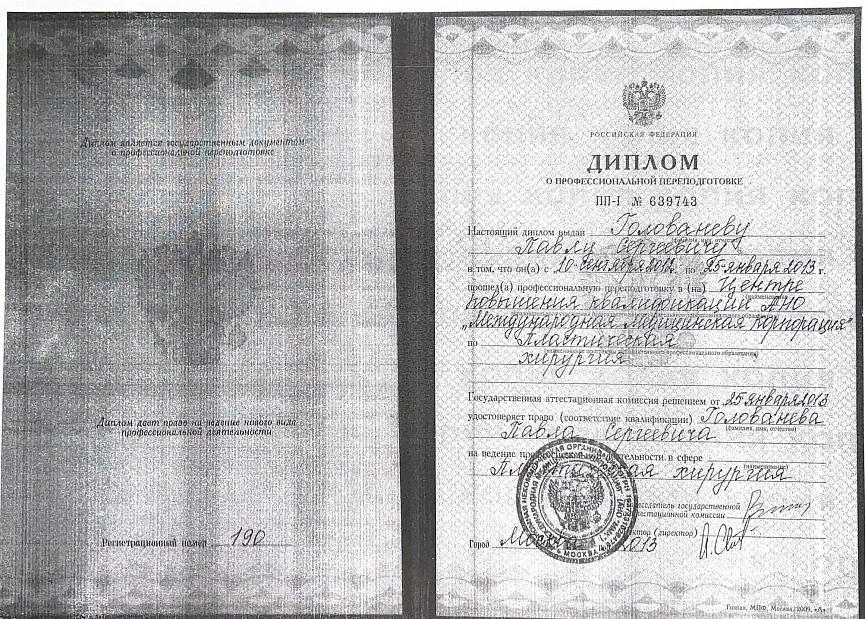 Диплом является государственным документом
о профессиональной переподготовке
Диплом дает право на ведение нового вида
профессиональной деятельности
Регистрационный номер 190
РОССИЙСКАЯ ФЕДЕРАЦИЯ
ДИПЛОМ
О ПРОФЕССИОНАЛЬНОЙ ПЕРЕПОДГОТОВКЕ
ПП-I № 639743
Настоящий диплом выдан Голованеву
Павлу Сергеевичу
(фамилия, имя, отчество)
в том, что он(а) с 10 сентября 2012 г. по 25 января 2013 г.
прошел(а) профессиональную переподготовку в (на) Центре
(наименование)
повышения квалификации АНО
„Международная медицинская корпорация"
по Пластическая
хирургия
Государственная аттестационная комиссия решением от 25 января 2013
удостоверяет право (соответствие квалификации) Голованева
(фамилия, имя, отчество)
Павла Сергеевича
на ведение деятельности в сфере
(наименование)
хирургия
государственной
аттестационной комиссии
(директор)
Город Москва 2013
МОСКВА
Гознак, МПФ, Москва, 2009, «А»